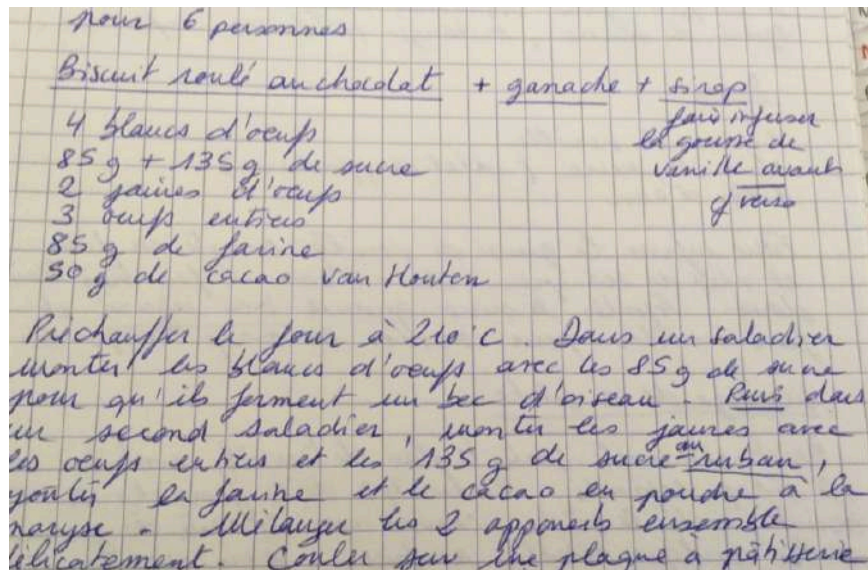 pour 6 personnes
Biscuit roulé au chocolat + ganache + sirop
4 blancs d'oeufs
faire infuser
85 g + 135 g de sucre
la gousse de
2 jaunes d'oeufs
vanille avant
3 oeufs entiers
cf verso
85 g de farine
50 g de cacao Van Houten
Préchauffer le four à 210°C. Dans un saladier
monter les blancs d'oeufs avec les 85 g de sucre
pour qu'ils forment un bec d'oiseau. Puis dans
un second saladier, monter les jaunes avec
les oeufs entiers et les 135 g de sucre au ruban,
ajouter la farine et le cacao en poudre à la
maryse. Mélanger les 2 appareils ensemble
délicatement. Couler sur une plaque à pâtisserie